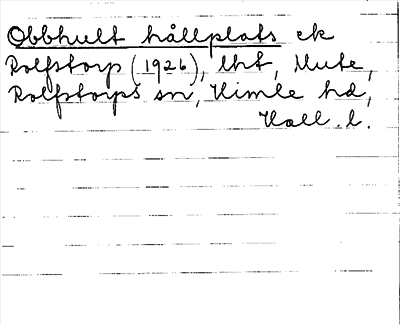 Obbhult hållplats ek
Rolfstorp (1926), lht, Mute,
Rolfstorps sn, Himle hd,
Hall. l.